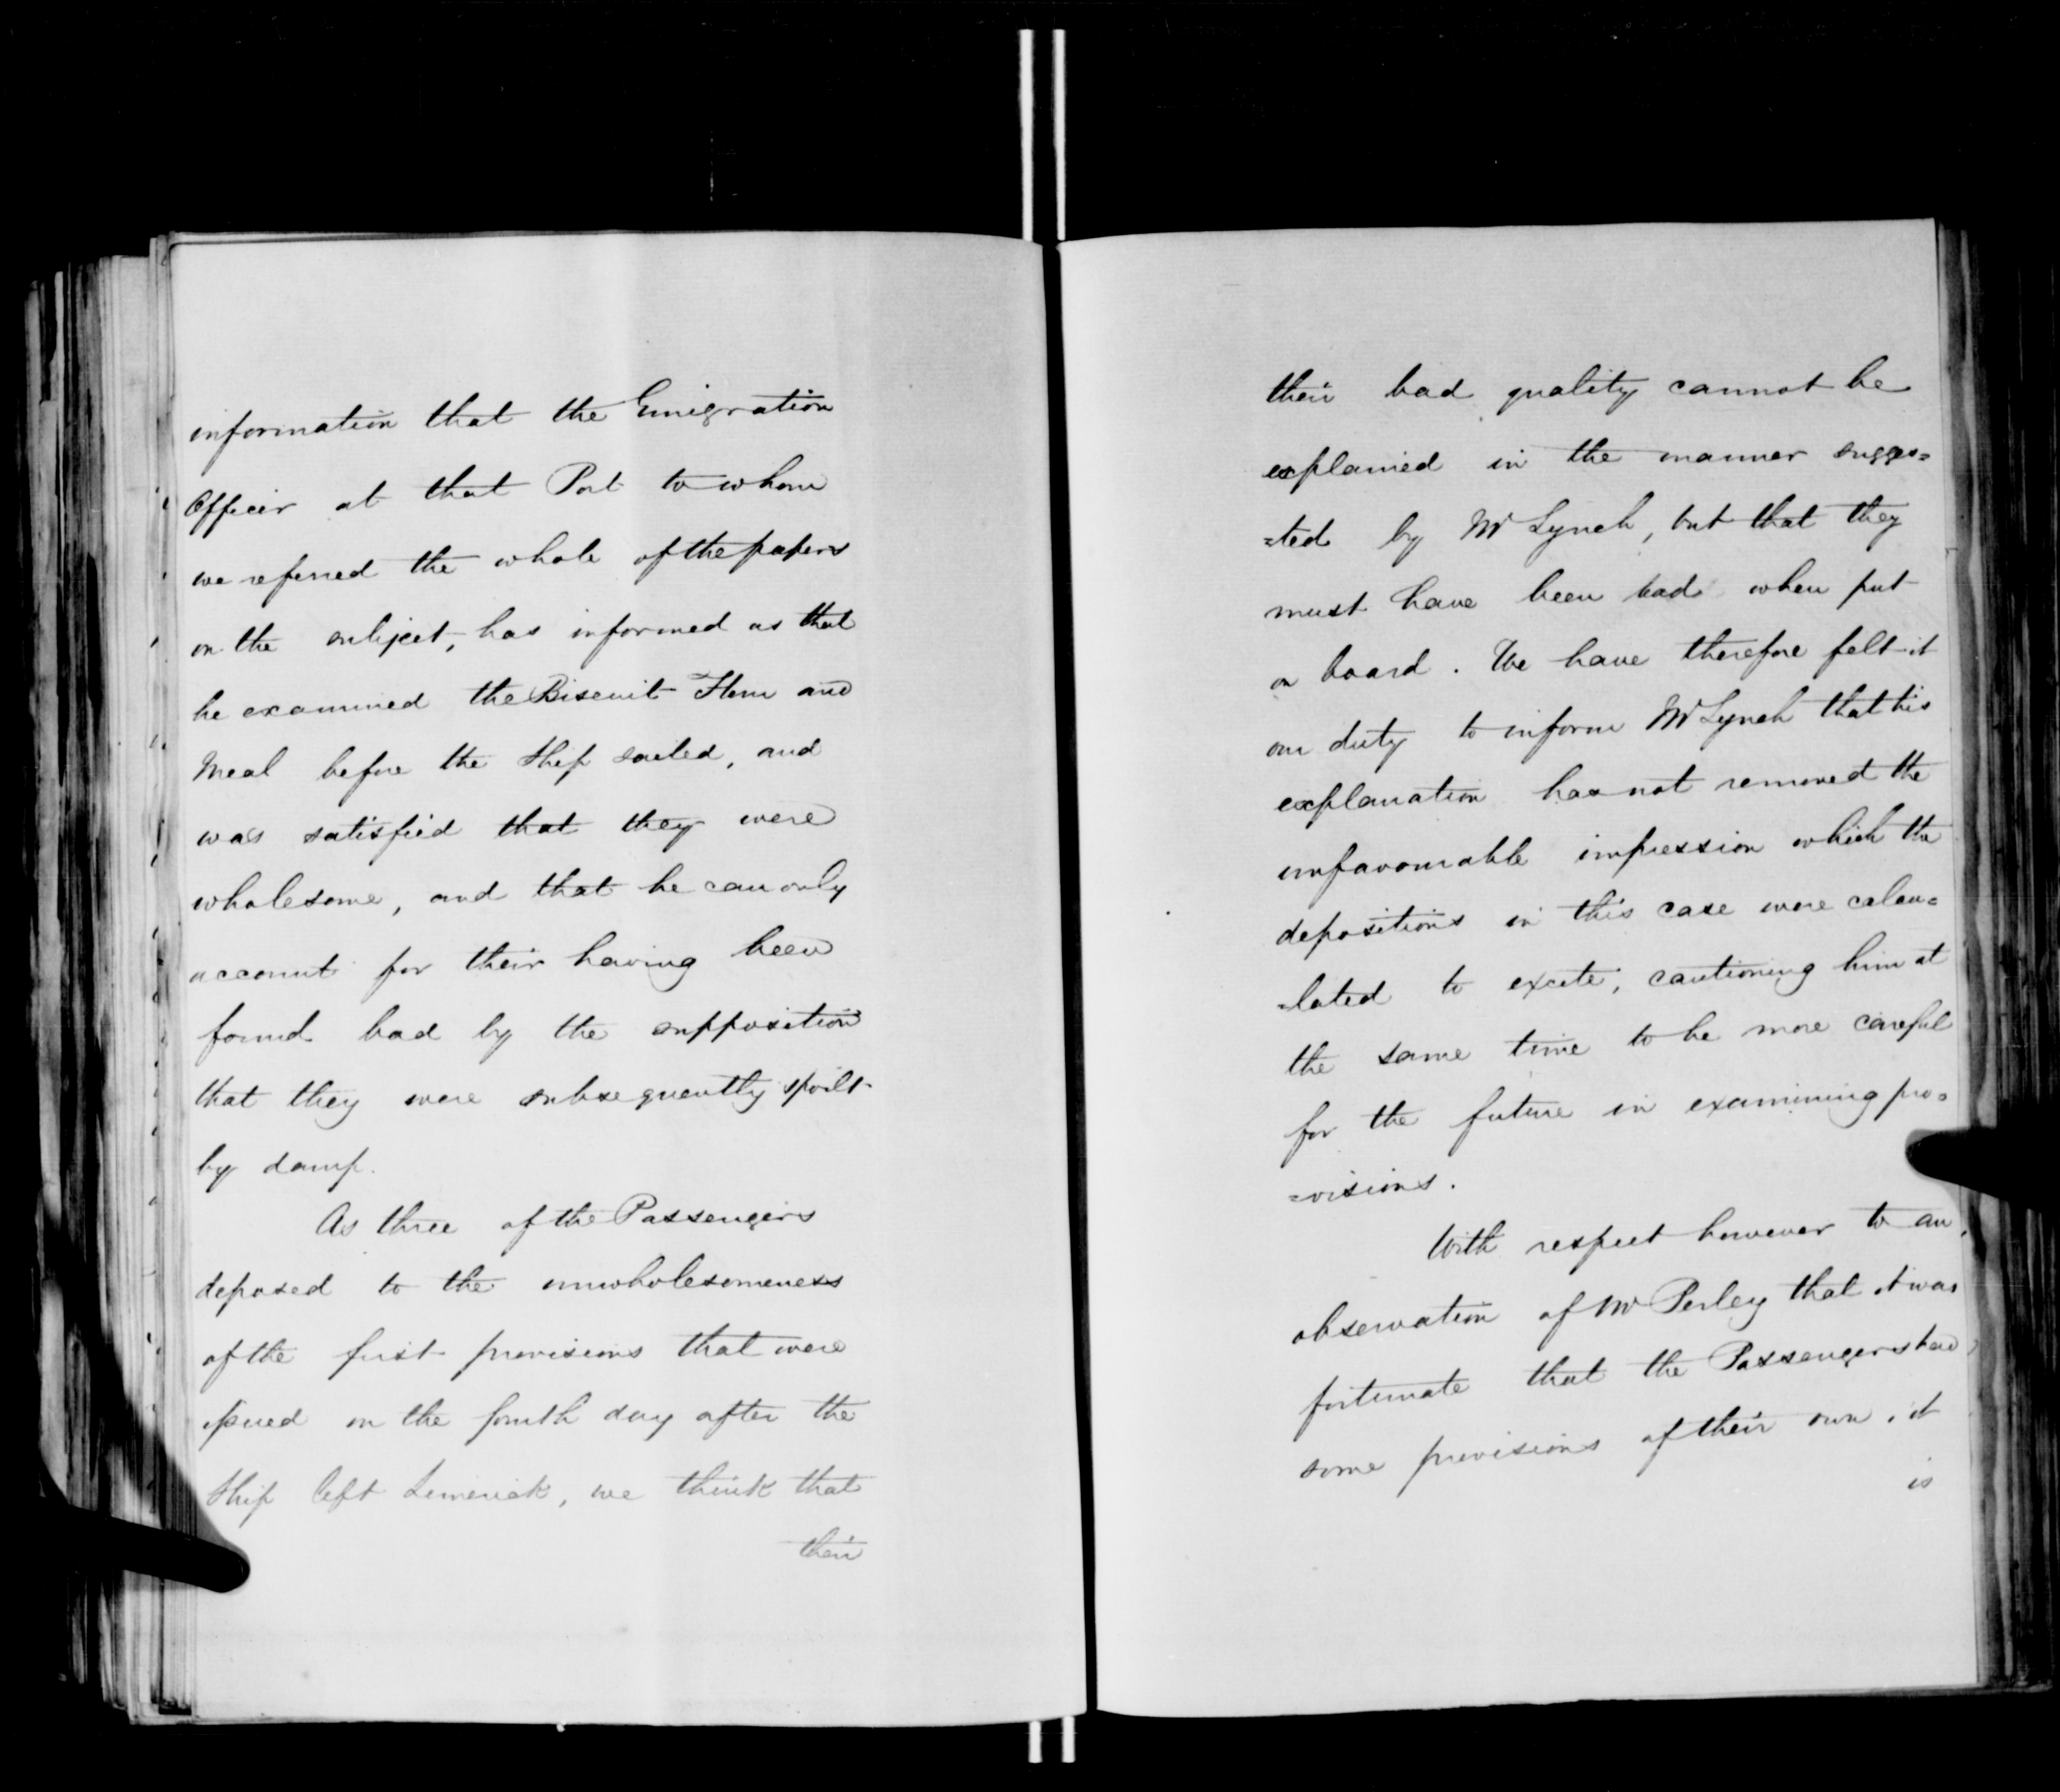 information that the Emigration
Officer at that Port to whom
we referred the whole of the papers
on the subject, has informed us that
he examined the Biscuit Flour and
Meal before the Ship sailed, and
was satisfied that they were
wholesome, and that he can only
account for their having been
found bad by the supposition
that they were subsequently spoilt
by damp.
As three of the Passengers
deposed to the unwholesomeness
of the first provisions that were
issued on the fourth day after the
Ship left Limerick, we think that
their
their bad quality cannot be
explained in the manner sugges=
=ted by Mr Lynch, but that they
must have been bad when put
on board. We have therefore felt it
our duty to inform Mr Lynch that his
explanation has not removed the
unfavourable impression which the
depositions in this case were calcu=
=lated to excite, cautioning him at
the same time to be more careful
for the future in examining pro=
=visions.
With respect however to an
observation of Mr Perley that it was
fortunate that the Passengers had
some provisions of their own, it
is